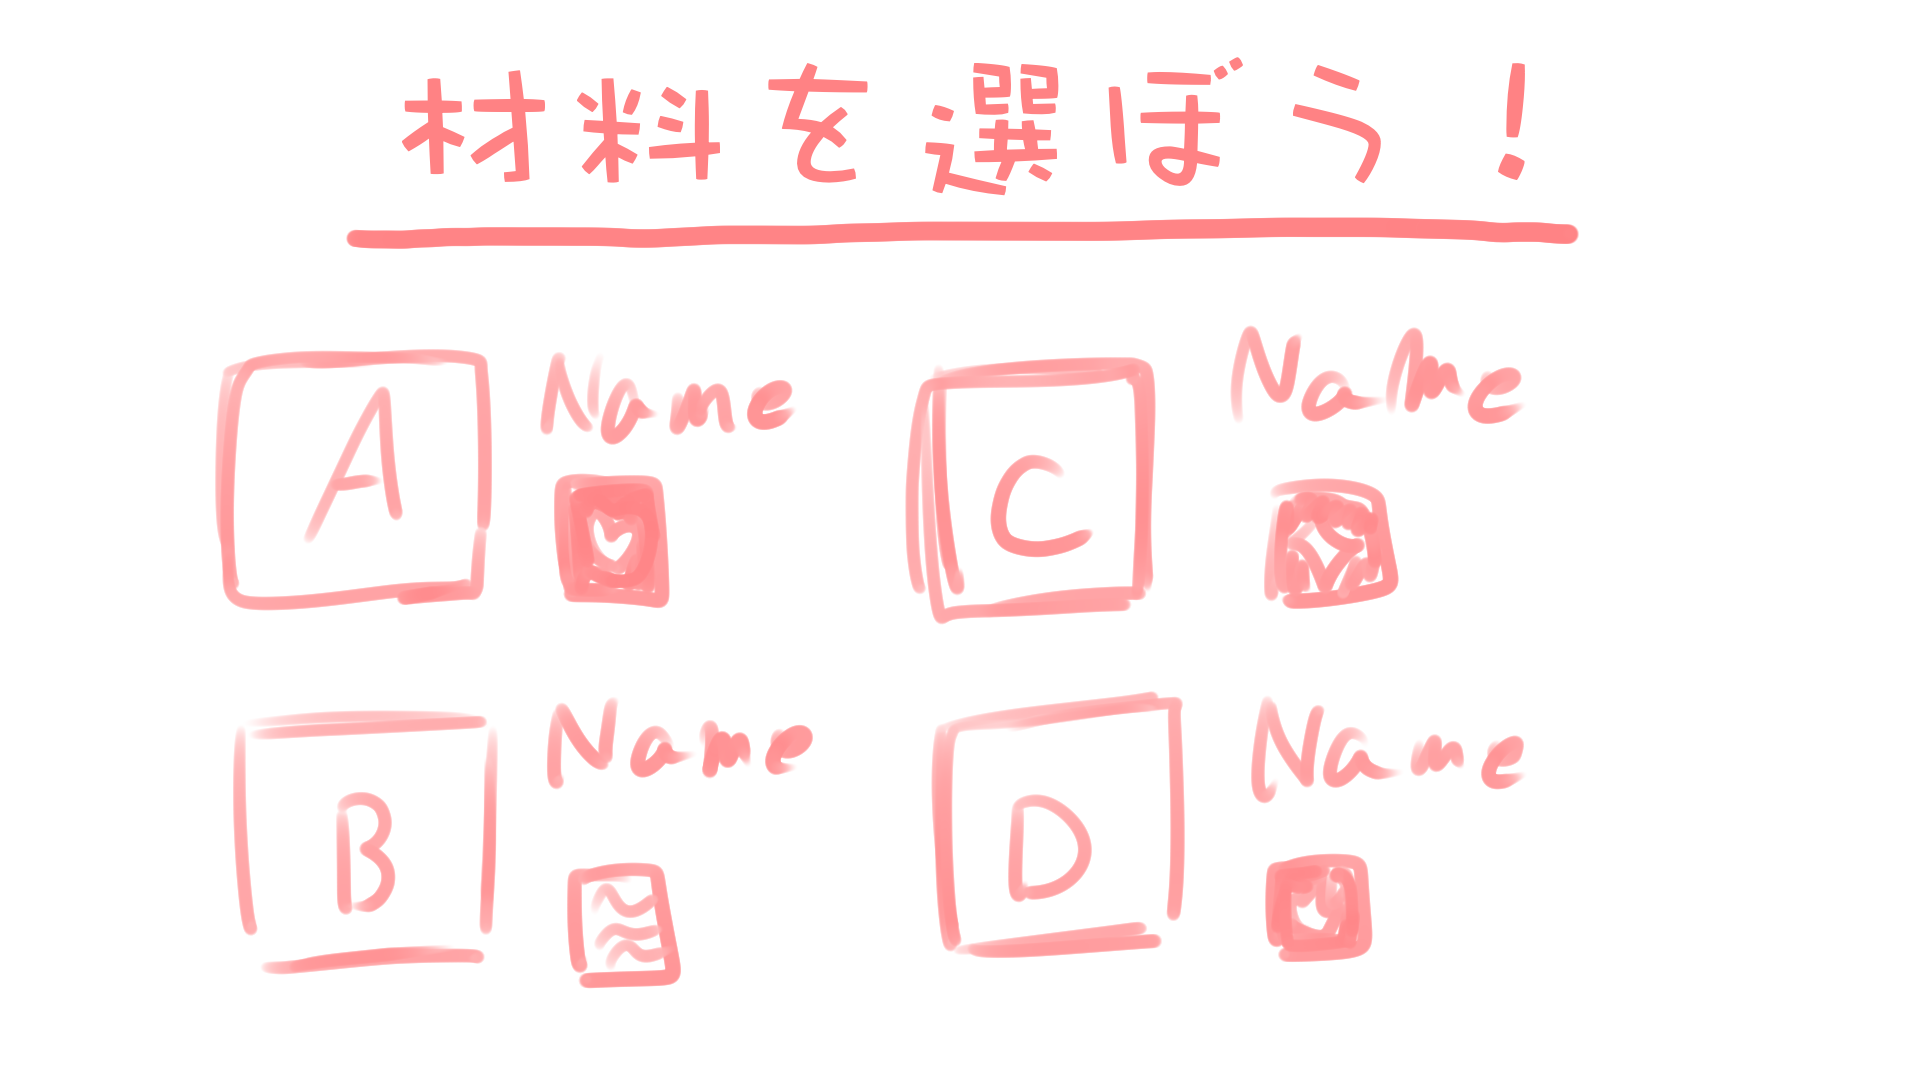 材料を選ぼう！
A Name
C Name
B Name
D Name